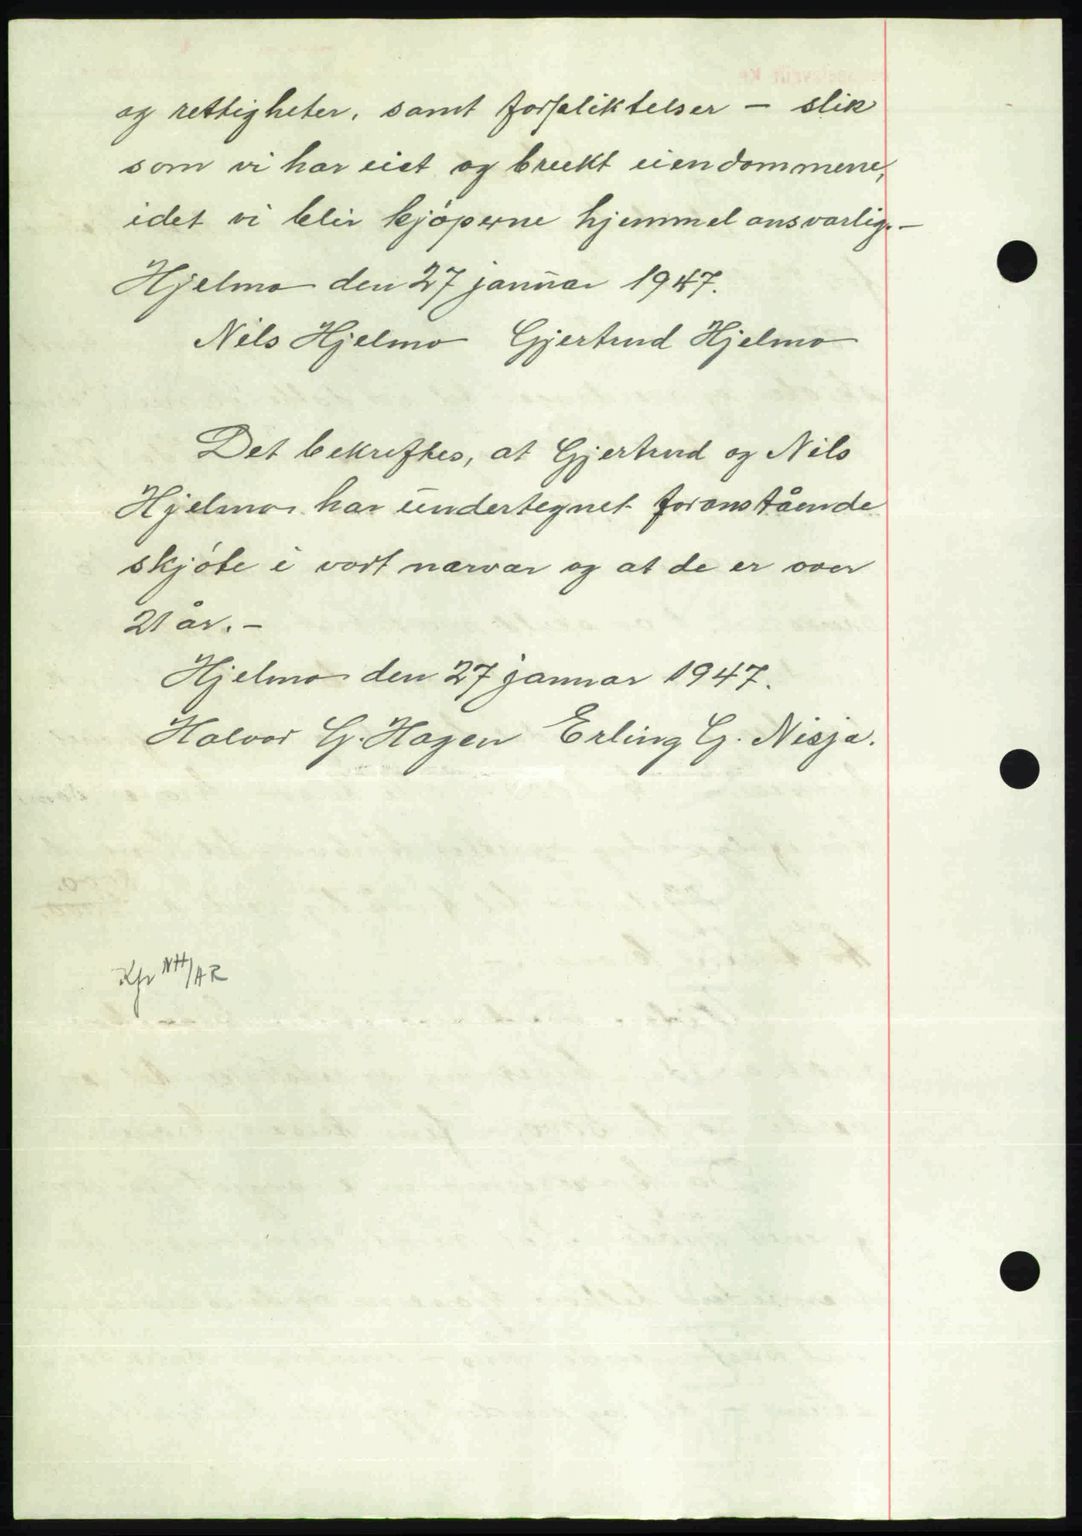 og rettigheter, samt forpliktelser — slik
som vi har eiet og brukt eiendommene,
idet vi blir kjøperne hjemmelansvarlig.—
Hjelmo den 27 januar 1947.
Nils Hjelmo Gjertrud Hjelmo
Det bekreftes, at Gjertrud og Nils
Hjelmo har undertegnet foranstående
skjøte i vort nærvær og at de er over
21 år.—
Hjelmo den 27 januar 1947.
Halvor G. Hagen Erling G. Nisja.
Kfr NH/AR